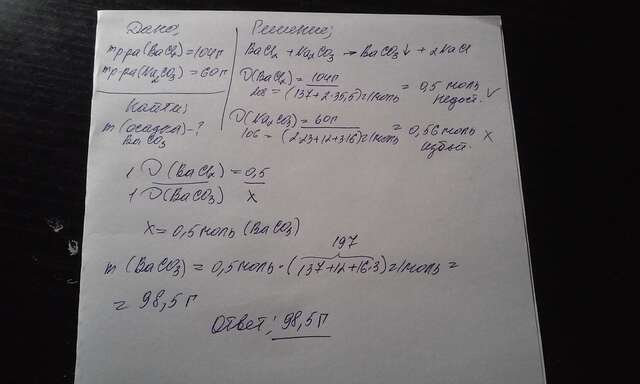 Дано:
mр-ра(BaCl₂)=104г
mр-ра(Na₂CO₃)=60г
Найти:
m(осадка)-?
BaCO₃
Решение:
BaCl₂ + Na₂CO₃ → BaCO₃↓ + 2NaCl
ν(BaCl₂) = 104г
208 = (137+2·35,5)г/моль = 0,5 моль
недост. ✓
ν(Na₂CO₃) = 60г
106 = (2·23+12+3·16)г/моль = 0,56 моль x
избыт.
1 ν(BaCl₂) = 0,5
1 ν(BaCO₃) x
x = 0,5 моль (BaCO₃)
197
m (BaCO₃) = 0,5 моль · (137+12+16·3)г/моль =
= 98,5 г
Ответ: 98,5г